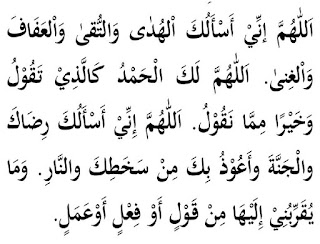 اَللّٰهُمَّ إِنِّيْ أَسْأَلُكَ الْهُدٰى وَالتُّقىٰ وَالْعَفَافَ
وَالْغِنىٰ. اَللّٰهُمَّ لَكَ الْحَمْدُ كَالَّذِيْ تَقُوْلُ
وَخَيْرًا مِمَّا نَقُوْلُ. اَللّٰهُمَّ إِنِّيْ أَسْأَلُكَ رِضَاكَ
وَالْجَنَّةَ وَأَعُوْذُ بِكَ مِنْ سَخَطِكَ وَالنَّارِ. وَمَا
يُقَرِّبُنِيْ إِلَيْهَا مِنْ قَوْلٍ أَوْ فِعْلٍ أَوْعَمَلٍ.